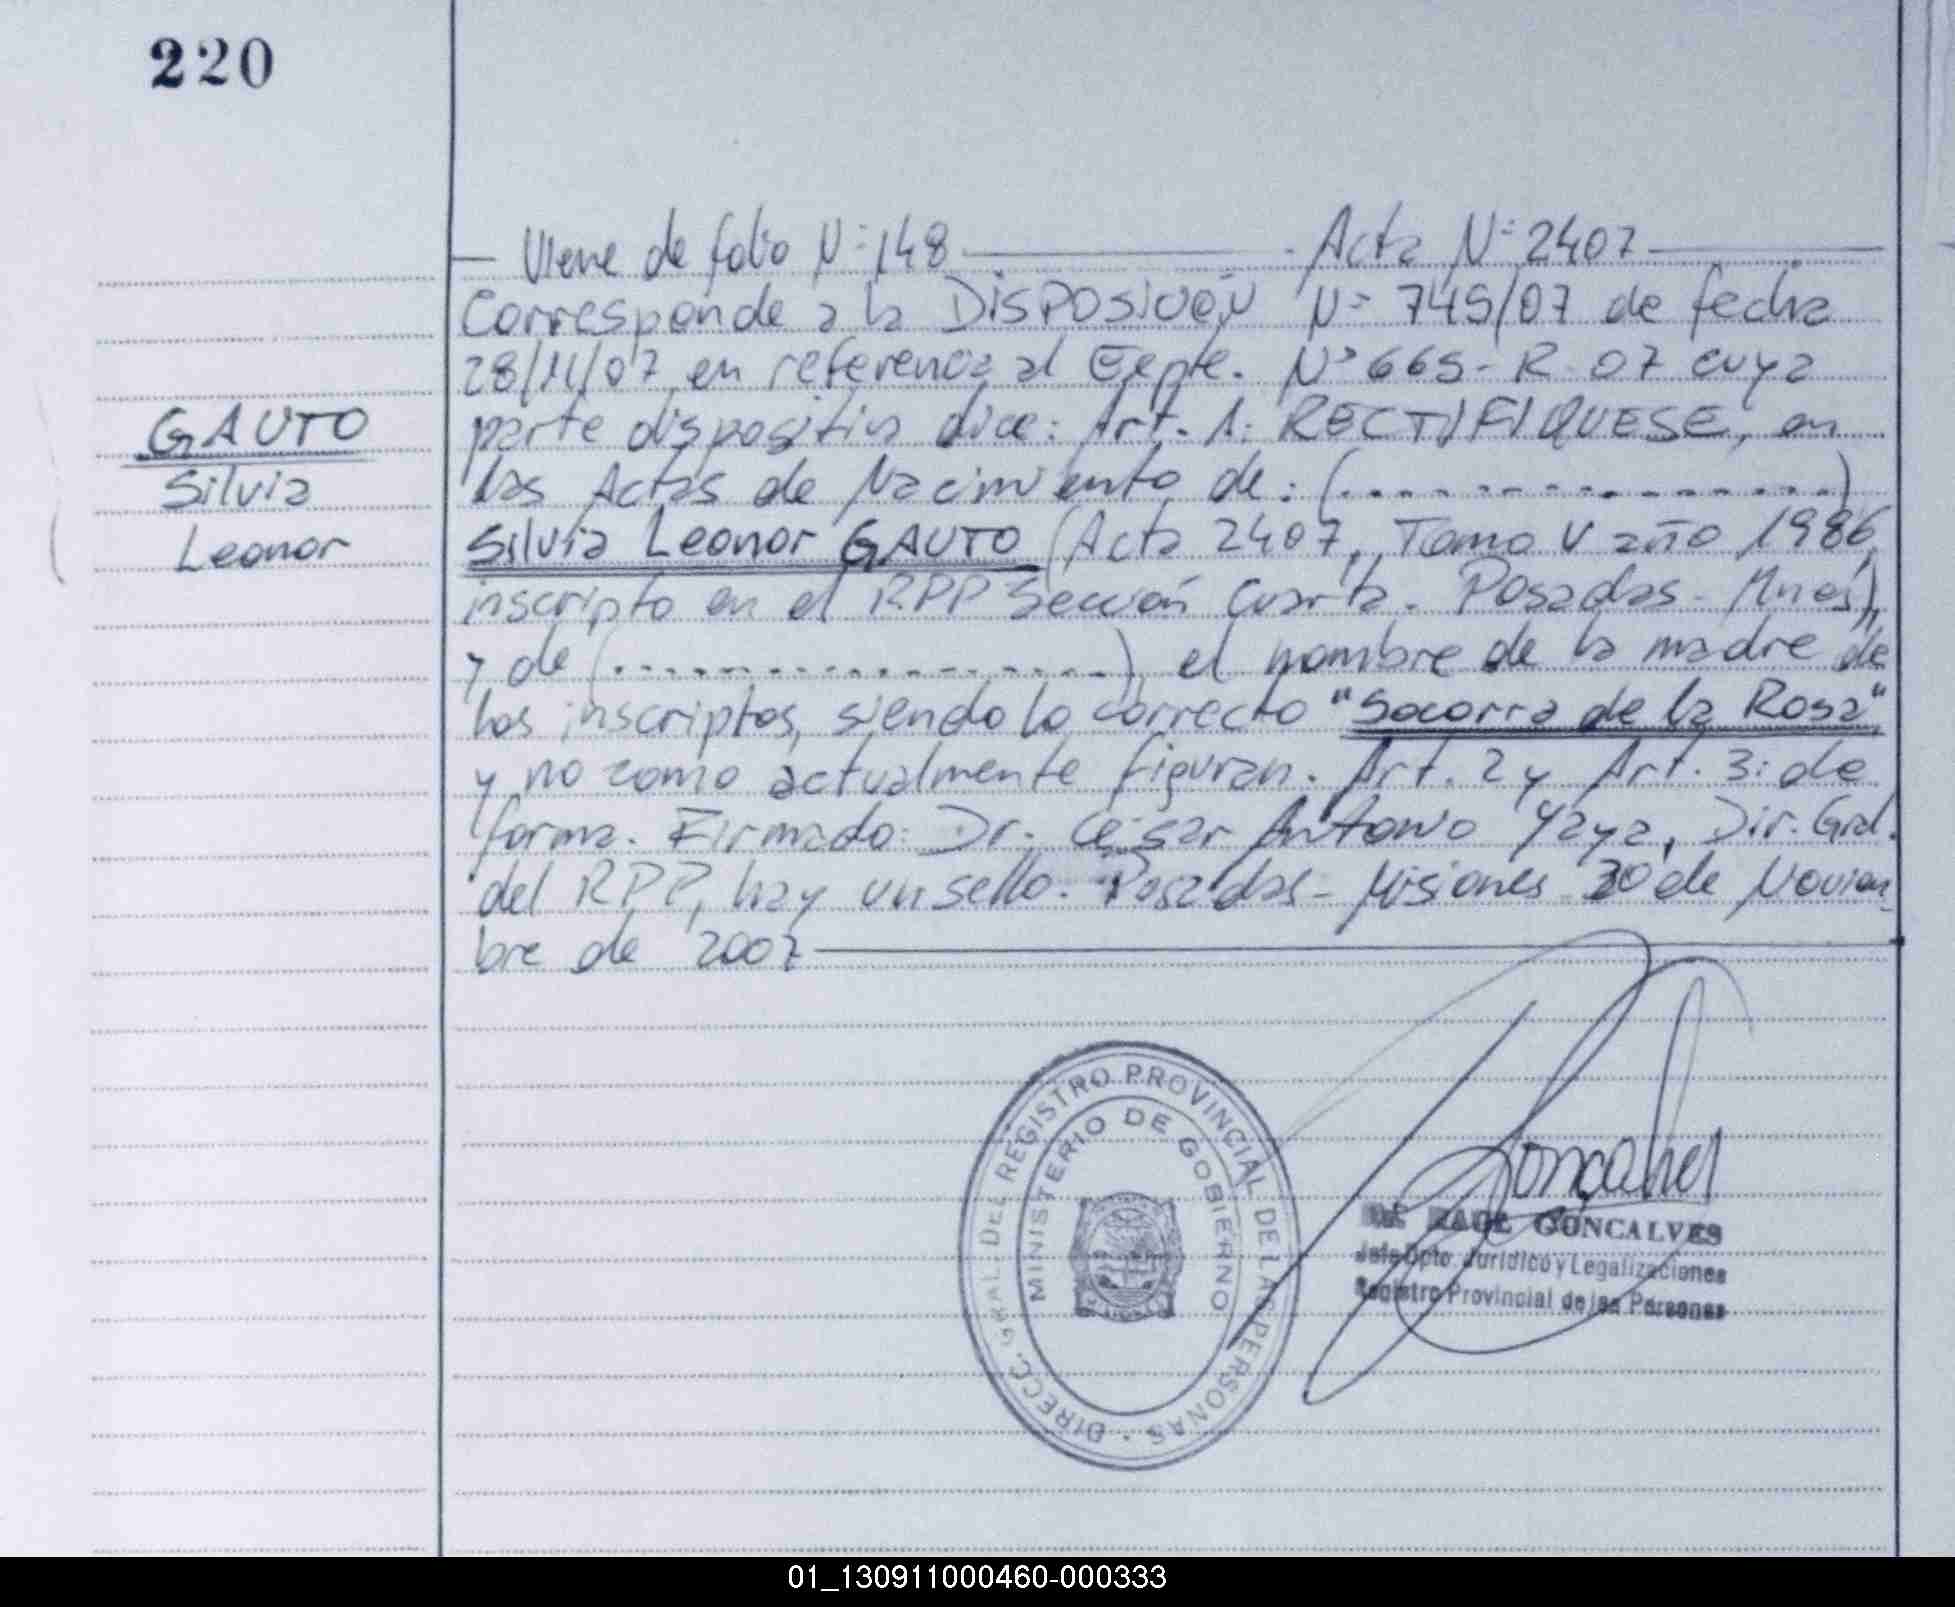 220
— Viene de folio N: 148 ——— Acta N: 2407 ———
Corresponde a la DISPOSICIÓN Nº 749/07 de fecha
28/11/07 en referencia al Expte. Nº 669-R-07 cuya
GAUTO
parte dispositiva dice: Art. 1: RECTIFIQUESE, en
Silvia
las Actas de Nacimiento de: (...............)
Leonor
Silvia Leonor GAUTO (Acta 2407, Tomo V año 1986,
inscripto en el RPP Sección Cuarta. Posadas - Mnes),
y de (...............) el nombre de la madre de
los inscriptos, siendo lo correcto "Socorra de la Rosa",
y no como actualmente figuran. Art. 2 y Art. 3: de
forma. Firmado: Dr. César Antonio Yaya, Dir. Gral.
del RPP, hay un sello. Posadas - Misiones 30 de Noviem
bre de 2007 ———
DIRECC. GRAL. DEL REGISTRO PROVINCIAL DE LAS PERSONAS
MINISTERIO DE GOBIERNO
Goncalves
RAUL GONCALVES
Jefe Dpto. Jurídico y Legalizaciones
Registro Provincial de las Personas
01_130911000460-000333